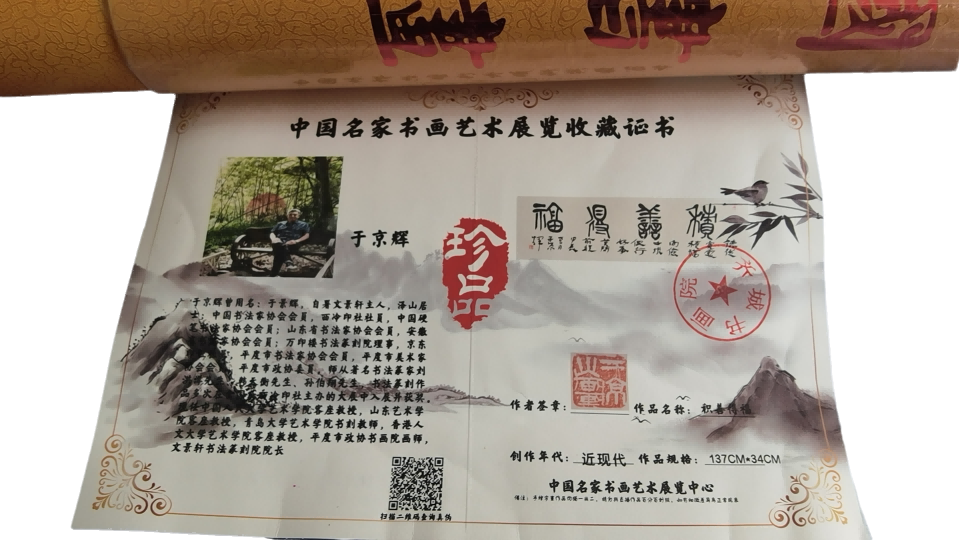 中国名家书画艺术展览收藏证书
于京辉
珍品
福得善積
书画院
于京辉曾用名：于景辉，自署文景轩主人，泽山居
士，中国书法家协会会员，西泠印社社员，中国硬
笔书法家协会会员；山东省书法家协会会员，安徽
书法家协会会员；万印楼书法篆刻院理事，京东
协会会员，平度市书法家协会会员，平度市美术家
协会会员，平度市政协委员，师从著名书法篆家刘
先生，孙伯翔先生。书法篆刻作
品多次在
西泠印社主办的大展中入展并获奖。
现任中国人民大学艺术学院客座教授，山东艺术学
院客座教授，青岛大学艺术学院书刻教师，香港人
文大学艺术学院客座教授，平度市政协书画院画师，
文景轩书法篆刻院院长
扫描二维码查询真伪
作者签章：
作品名称：积善得福
创作年代：近现代 作品规格：137CM*34CM
中国名家书画艺术展览中心